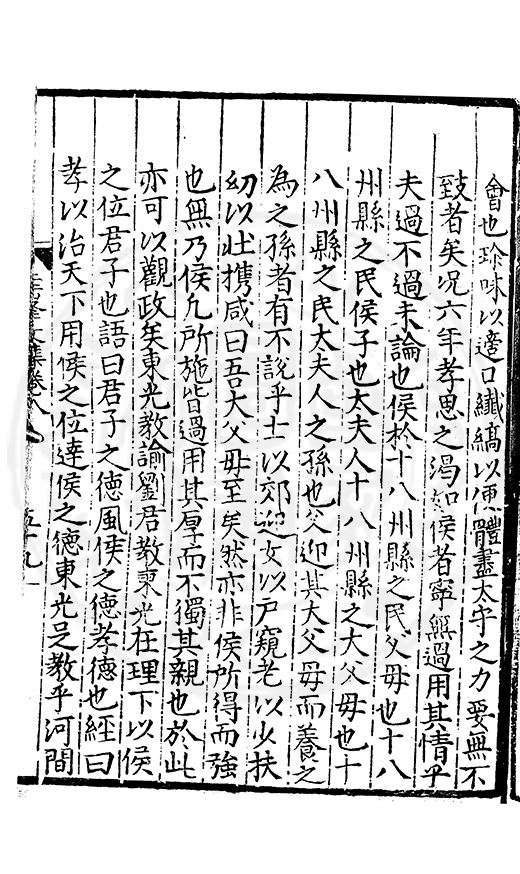 會也珍味以適口纖縞以便體盡太守之力要無不
致者矣况六年孝思之渴如侯者寧無過用其情乎
夫過不過未論也侯於十八州縣之民父母也十八
州縣之民侯子也太夫人十八州縣之大父母也十
八州縣之民太夫人之孫也父迎其大父母而養之
為之孫者有不說乎士以郊迎女以戶窺老以少扶
幼以壯携咸曰吾大父母至矣然亦非侯所得而強
也無乃侯凢所施皆過用其厚而不獨其親也於此
亦可以觀政矣東光教諭劉君教東光在理下以侯
之位君子也語曰君子之德風侯之德孝德也經曰
孝以治天下用侯之位達侯之德東光足教乎河間
文集卷八
五十九